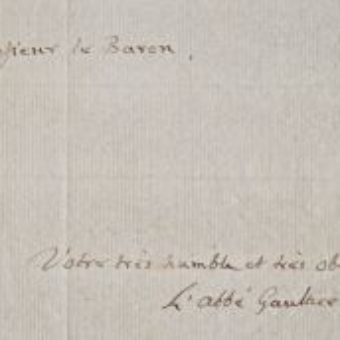 sieur le Baron,
Votre très humble et très ob
L'abbé Gaultier